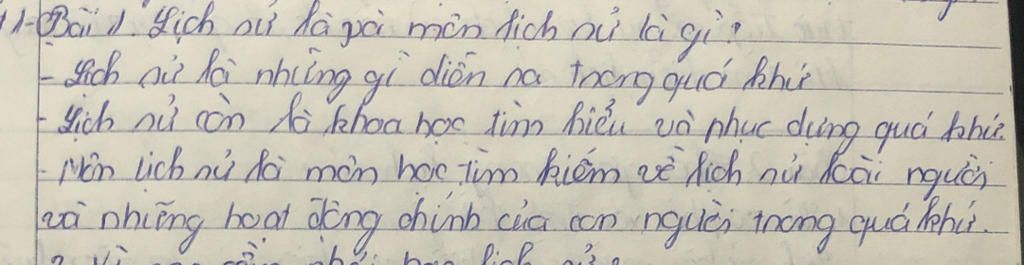 1-Bài 1. Lịch sử là gì và môn lịch sử là gì?
- Lịch sử là những gì diễn ra trong quá khứ
- Lịch sử còn là khoa học tìm hiểu và phục dựng quá khứ.
- Môn lịch sử là môn học tìm kiếm về lịch sử loài người
và những hoạt động chính của con người trong quá khứ.
2. Vì sao cần phải học lịch sử?